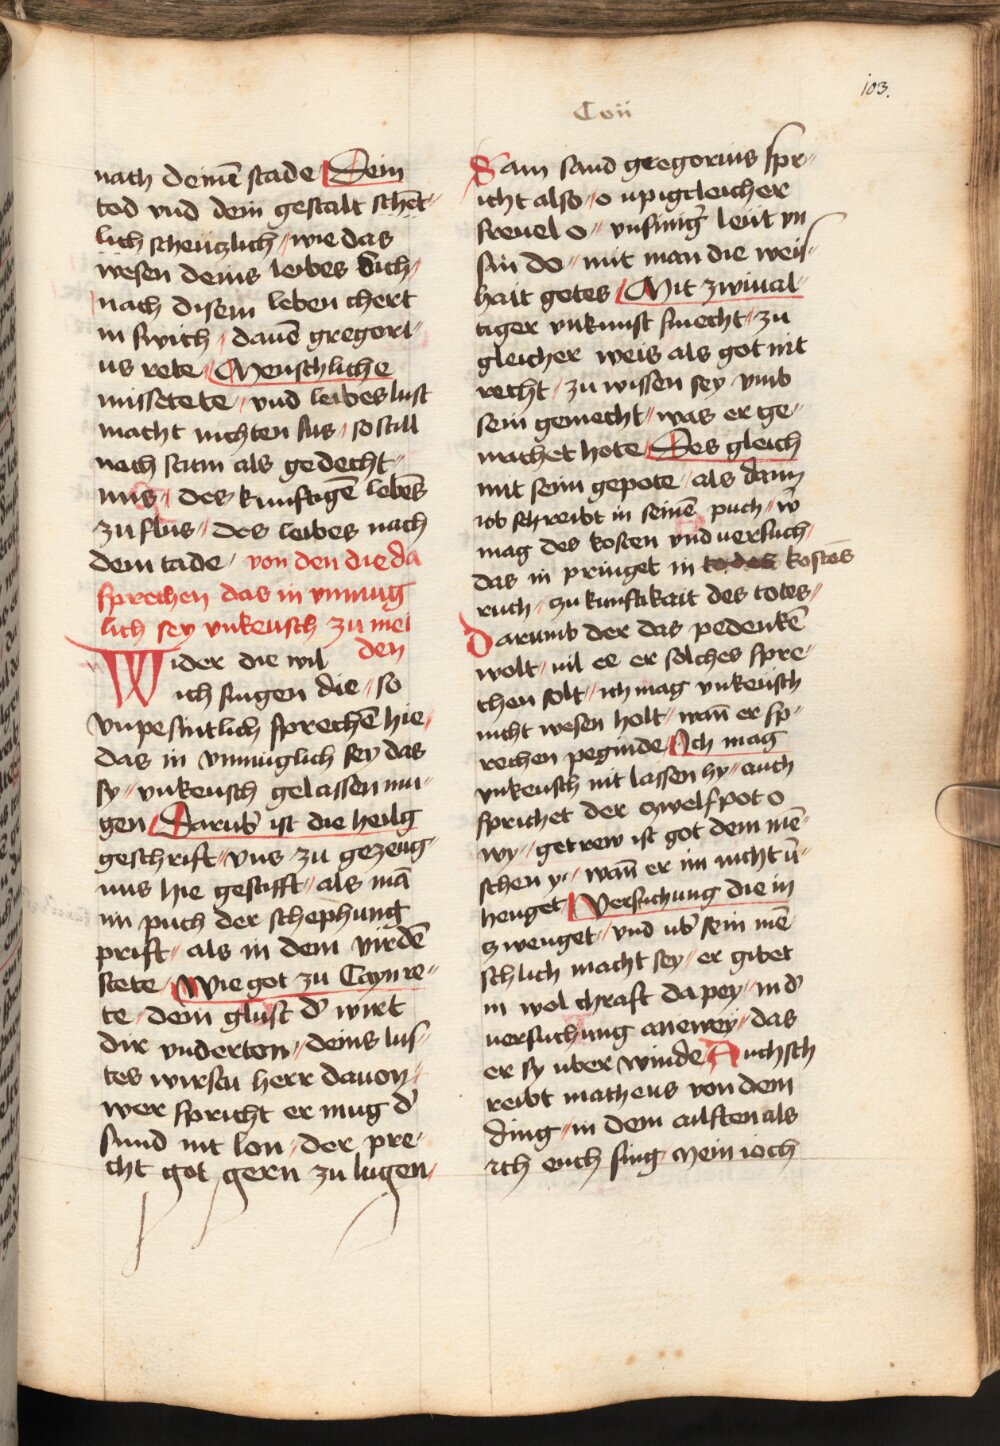 103.
Cvii
nach deinē stade Dein
tod vnd dein gestalt schēt
lich scheüczlich wie das
wesen deins leibes dich
nach disem leben chert
in swich dauē gregori
us rete Menschliche
missetete vnd leibes lust
macht nichten sus so still
nach scam als gedecht
nus des kunftigē lebēs
zu flus des leibes nach
dem tade von den die da
sprechen das in vnmug
lich sey vnkeusch zu mei
den
Wider die wil
ich singen die so
vnpesintlich sprechē hie
das in vnmuglich sey das
sy vnkeusch gelassen mu
gen Darub̄ ist die heilg
geschrift vns zu gezeug
nus hie gestifft als mā
im puch der schephung
prift als in dem virdē
stete Wie got zu Cayn re
te dein glust d̄ wirt
dir vnderten deins lus
tes wirstu herr dauon
wer spricht er mug d̄
sund nit lon der pre
cht got gern zu lugen
Sam sand gregorius spr
icht also o upigcleicher
freuel o vnsiniḡ leüt vn
sin do mit man die weis
hait gotes Mit zwiual
tiger vnkunst smecht zu
gleicher weis als got nit
recht zu wissen sey vmb
sein gemecht was er ge
machet hete Des gleich
mit seim gepote als dann
iob schreibt in seinē puch w̄
mag des kosten vnd uersuch
das in pringet in kostēs
ruch zu kunftikait des totes
Darumb der das pedenkē
wolt nil ee er solches spre
chen solt ich mag vnkeusch
nicht wesen holt wan̄ er sp
rechen peginde Ich mag
vnkeusch nit lassen hy auch
sprichet der zwelfpot o
wy getrew ist got dem mē
schen y wan̄ er im nicht ū
henget Versuchung die in
zwenget vnd ub̄ sein mē
schlich macht sey er gibet
in wol chraft da pey in d̄
uersuchung anewey das
er sy uber winde Auch sch
reibt matheus von dem
ding in dem ailften als
ich euch sing Mein ioch